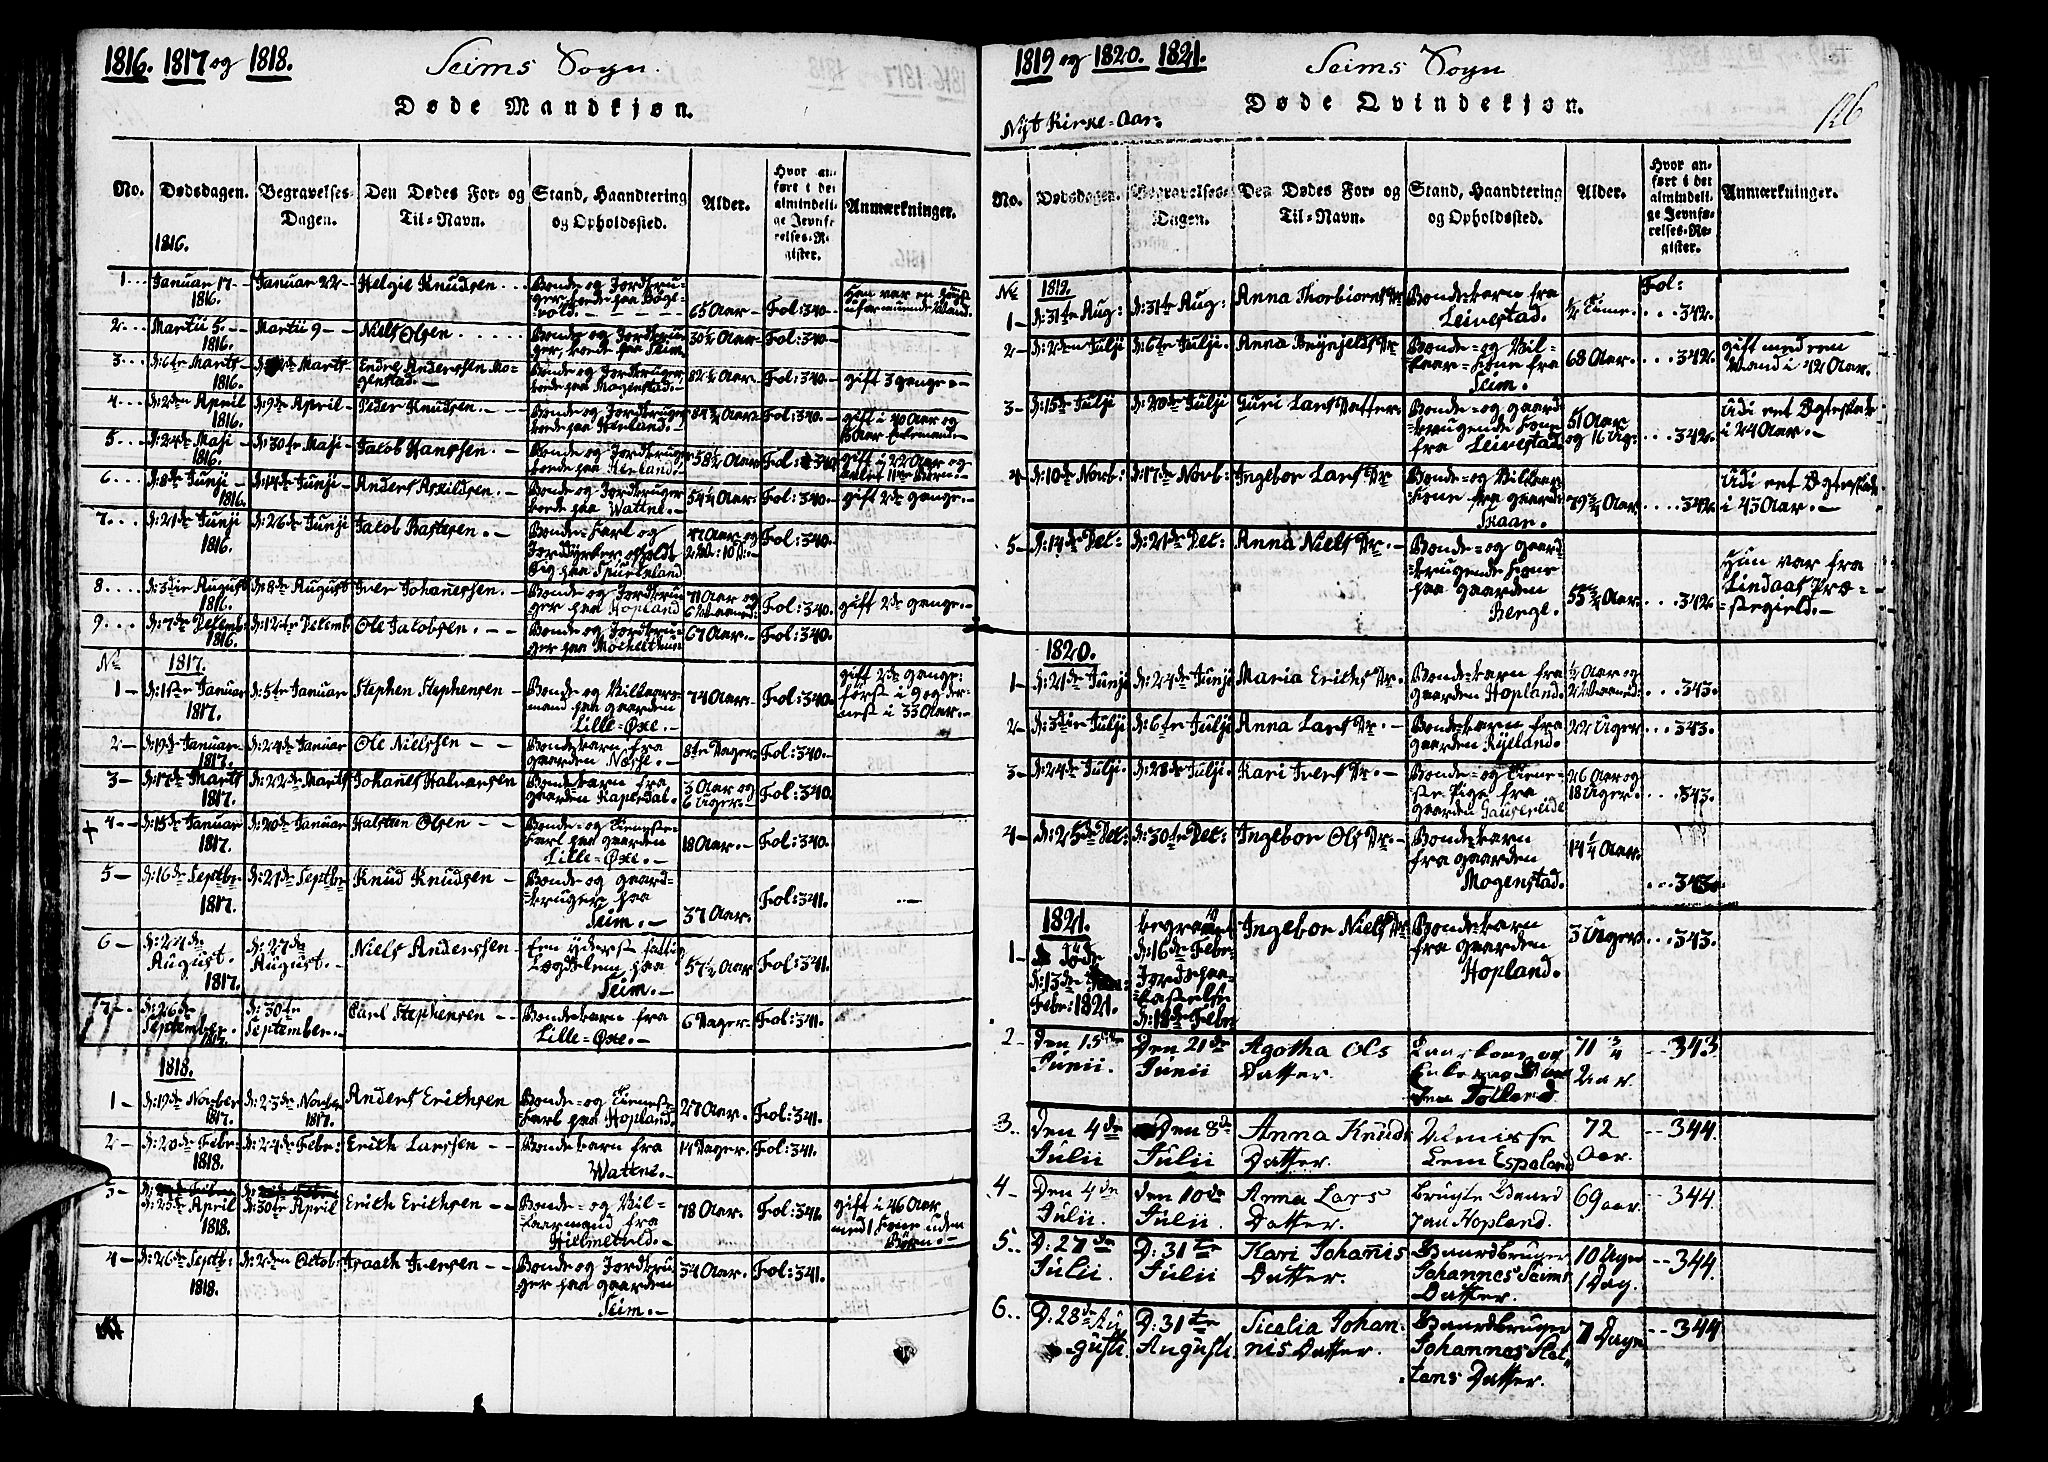 1816. 1817 og 1818.
Seims Sogn.
Døde Mandkjøn.
No.
Dødsdagen.
Begravelses-
Dagen.
Den Dødes For- og
Til-Navn.
Stand, Haandtering
og Opholdssted.
Alder.
Hvor an-
ført i det
almindeli-
ge Jevnfø-
relses-Re-
gister.
Anmærkninger.
1816.
1... Januar 17- 1816. Januar 22- Helgie Knudsen Bonde og Jordbru-
ger, boede paa 65 Aar- Fol: 340-
2... Martii 5.- 1816. Martii 9- Niels Olsen Bonde og Jordbru-
ger, boede paa Seim 30½ Aar- Fol: 340-
3... d: 6te Marts 1816. Marts Endre Anderssen Mo-
genstad.- Bonde og Jordbruger,
boede paa Mogenstad.- 82½ Aar- Fol: 340- gift 3 gange.-
4... d: 2den April 1816. d: 9de April- Peder Knudsen.- Bonde og Jordbruger
boede paa Herland.- Aar- Fol: 340- gift i 40 Aar og
5... d: 24de Maji 1816. d: 30te Maji- Jacob Hanssen.- Bonde og Jordbruger
boede paa Herland.- 58½ Aar Fol: 340 gift i 22 Aar og
6... d: 8de Junji- 1816. d: 14de Junji- Anders Askildsen.- Bonde og Jordbruger
boede paa Wattne.- 54¼ Aar- Fol: 340- gift 2de gange.-
7... d: 21de Junji 1816. d: 26de Junji Jacob Bastesen.- Bonde-Karl og
Jorddyrker opholdt
sig paa Aar og Fol: 340-
8... d: 3die August 1816. d: 8de August Iver Johannessen.- Bonde og Jordbru-
ger paa Hopland 71 Aar og
6 Maaned. Fol: 340. gift 2de gange.-
9... d: 7de Decemb- 1816. d: 12te Decemb. Ole Jacobsen.-- Bonde og Jordbru-
ger paa 67 Aar.- Fol: 340.
No 1817.
1- d: 1ste Januar 1817. d: 5te Januar Stephen Stephensen- Bonde- og Vilkaars-
mand paa gaarden
Lille-Øxe.- 74 Aar- Fol: 340- gift 2de gange:
først i 9 og der-
næst i 33 Aar.-
2- d: 19de Januar 1817. d: 24de Januar Ole Nielssen-- Bondebarn fra
gaarden Næsse.- 8te Dage Fol: 340-
3- d: 17de Marts 1817. d: 22de Marts Johanes Halvorsen Bondebarn fra
gaarden 3 Aar og
6 Uger- Fol: 340.
+ 4-- d: 15de Januar 1817. d: 20de Januar Halsten Olsen-- Bonde- og Tieneste-
Karl paa gaarden
Lille-Øxe.- 18 Aar.- Fol: 340.
5- d: 16de Septbr 1817. d: 21de Septbr Knud Knudsen- Bonde- og gaard-
bruger paa
Seim.- 37 Aar. Fol: 341.
6- d: 24de
August. 1817. d: 27de
August.- Niels Anderssen Een yderst fattig
Lægdslem paa
Seim.- 57½ Aar Fol: 341.
7- d: 26de
September. 1817. d: 30te
September.- Carl Stephensen-- Bondebarn fra
Lille-Øxe.- 6 Dager- Fol: 341.
1818.
1- d: 19de November 1817. d: 23de Novbr 1817. Anders Erichsen Bonde- og Tieneste-
Karl paa Hopland. 27 Aar. Fol: 341.
2- d: 20de Febr- 1818. d: 24de Febr: Erich Larssen- Bondebarn fra
Wattne.- 14 Dager. Fol: 341.
3- d: 25de April 1818. d: 30te April Erich Erichsen-- Bonde- og Vil-
kaarmand fra
Hielmetvld.- 78 Aar. Fol: 341. gift i 46 Aar
med 1 Kone uden
Børn.-
4- d: 26de Septb: 1818. d: 2den Octob: Isaach Iversen-- Bonde og Jordbru-
ger paa gaarden
Seim.- 34 Aar. Fol: 341.
1819 og 1820. 1821.
Seims Sogn
Døde Qvindekjøn.
Nyt Kirke-Aar.
126
No.
Dødsdagen.
Begravelses-
Dagen.
Den Dødes For- og
Til-Navn.
Stand, Haandtering
og Opholdssted.
Alder.
Hvor an-
ført i det
almindeli-
ge Jevnfø-
relses-Re-
gister.
Anmærkninger.
No 1819. Fol:
1- d: 31te Aug: d: 31te Aug: Anna Thorbiorns Dr Bondebarn fra
Leivestad. ½ Time. ... 342.
2- d: 2den Julji d: 6te Julji. Anna Dr Bonde- og Vil-
kaar-Kone fra
Seim. 68 Aar. ... 342. gift med een
Mand i 42 Aar.
3- d: 15de Julji d: 20de Julji Guri Lars Datter- Bonde- og gaard-
brugende Kone
fra Leivestad 51 Aar
og 16 Ug: ... 342. Udi eet Ægteskab
i 24 Aar.-
4 d: 10de Novb: d: 17de Novb: Ingebor Lars Dr Bonde- og Vilkaar-
Kone fra gaard:
Skaar. 79¾ Aar. ... 342. Udi eet Ægteskab
i 43 Aar.-
5- d: 14de Dec: d: 21de Dec: Anna Niels Dr.- Bonde- og gaard-
brugende Kone
paa gaarden
Berge. 55¾ Aar. ... 342. Hun var fra
Lindaas Præ-
stegield.-
1820.
1- d: 21de Junji d: 24de Junji Maria Erichs Dr. Bondebarn fra
gaarden Hopland. ½ Aar og
Maaned: ... 343.
2- d: 3die Julji d: 6te Julji Anna Lars Dr.- Bondebarn fra
gaarden Rylland. 22 Uger ... 343.
3- d: 24de Julji. d: 28de Julji. Kari Ivers Dr.- Bonde- og Tiene-
ste-Pige fra
gaarden 26 Aar og
18 Uger. ... 343.
4- d: 25de Dec: d: 30te Dec: Ingebor Ols Dr- Bondebarn
fra gaarden
Mogenstad. 14¼ Aar. ... 343.
1821.
1- død
d: 13de
Febr: 1821. begravet
d: 16de Febr-
Jordspaa-
kastelse
d: 18de Febr Ingebor Niels Dr Bondebarn
fra gaarden
Hopland. 3 Uger ... 343.
2- Den 15de
Junii. Den 21de
Junii Agotha Ols
Datter. Tolland 71 ¾
Aar. -- 343
3.. Den 4de
Julii Den 8de
Julii Anna Knuds
Datter. Almisse
Lem Espeland 72
Aar. -- 344.
4- Den 4de
Julii. den 10de
Julii. Anna Lars
Datter. brugte Gaard
paa Hopland. 69 aar. -- 344.
5.. D: 27de
Julii. D: 31te
Julii Kari Johannis
Datter. Gaardbruger
Johannes Seims
Datter. 10 Uger
1 Dag. -- 344.
6.. D: 28de Au
gusti. D: 31te
Augusti. Sicelia Johan-
nis Datter. Gaardbruger
Johannes Slet-
tens Datter. 7 Dage -- 344